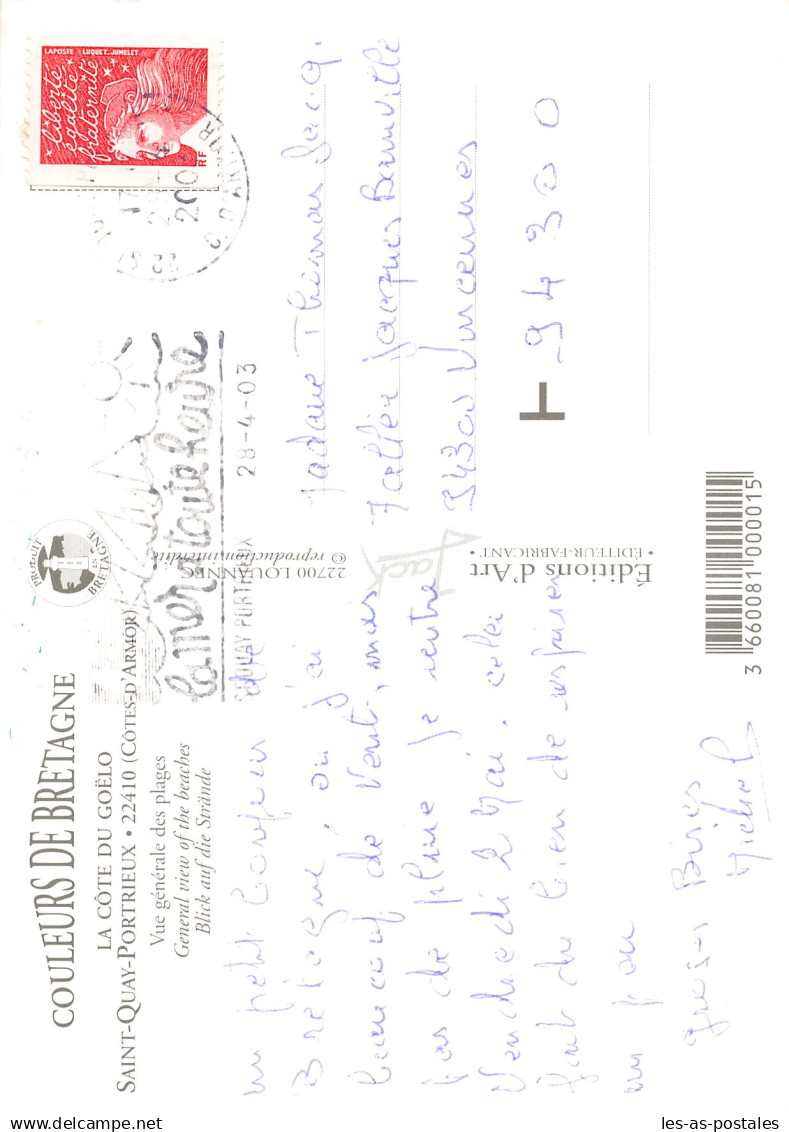 COULEURS DE BRETAGNE
LA CÔTE DU GOËLO
SAINT-QUAY-PORTRIEUX • 22410 (CÔTES-D'ARMOR)
Vue générale des plages
General view of the beaches
Blick auf die Strände
PRODUIT EN BRETAGNE
un petit bonjour de
Bretagne, ou j'ai
beaucoup de vent, mais
pas de pluie je rentre
Vendredi 2 Mai, cela
fait du bien de respirer
un peu
grosses Bises
Michel
22700 LOUANNEC
© reproduction interdite
Jack
Éditions d'Art
• ÉDITEUR-FABRICANT •
3 660081 000015
LAPOSTE LUQUET_JUMELET
liberté
égalité
fraternité
RF
la mer à toute heure
ST QUAY PORTRIEUX 28-4-03
Madame Thomas
Jacques Bainville
94300 Vincennes
94300
les-as-postales.com